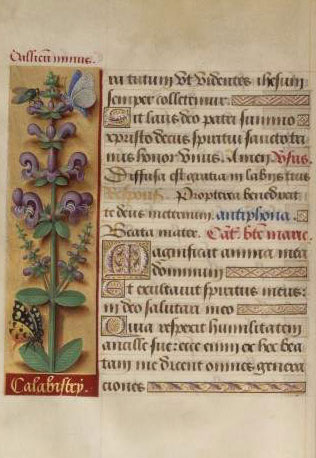 Callicu minus.
ra tutum Ut videntes ihesum
semper colletemur.
Sit laus deo patri summo
xpristo decus spiritui sancto tri
nus honor Unus. Amen. Versus.
Diffusa est gratia in labiis tuis
Respons. Propterea benedixit
te deus in eternum. antiphona.
Beata mater. Cāt. bte marie.
Magnificat anima mea
dominum
Et exultavit spiritus meus:
in deo salutari meo
Quia respexit humilitatem
ancille sue: ecce enim ex hoc bea
tam me dicent omnes genera
ciones
Calabistry.